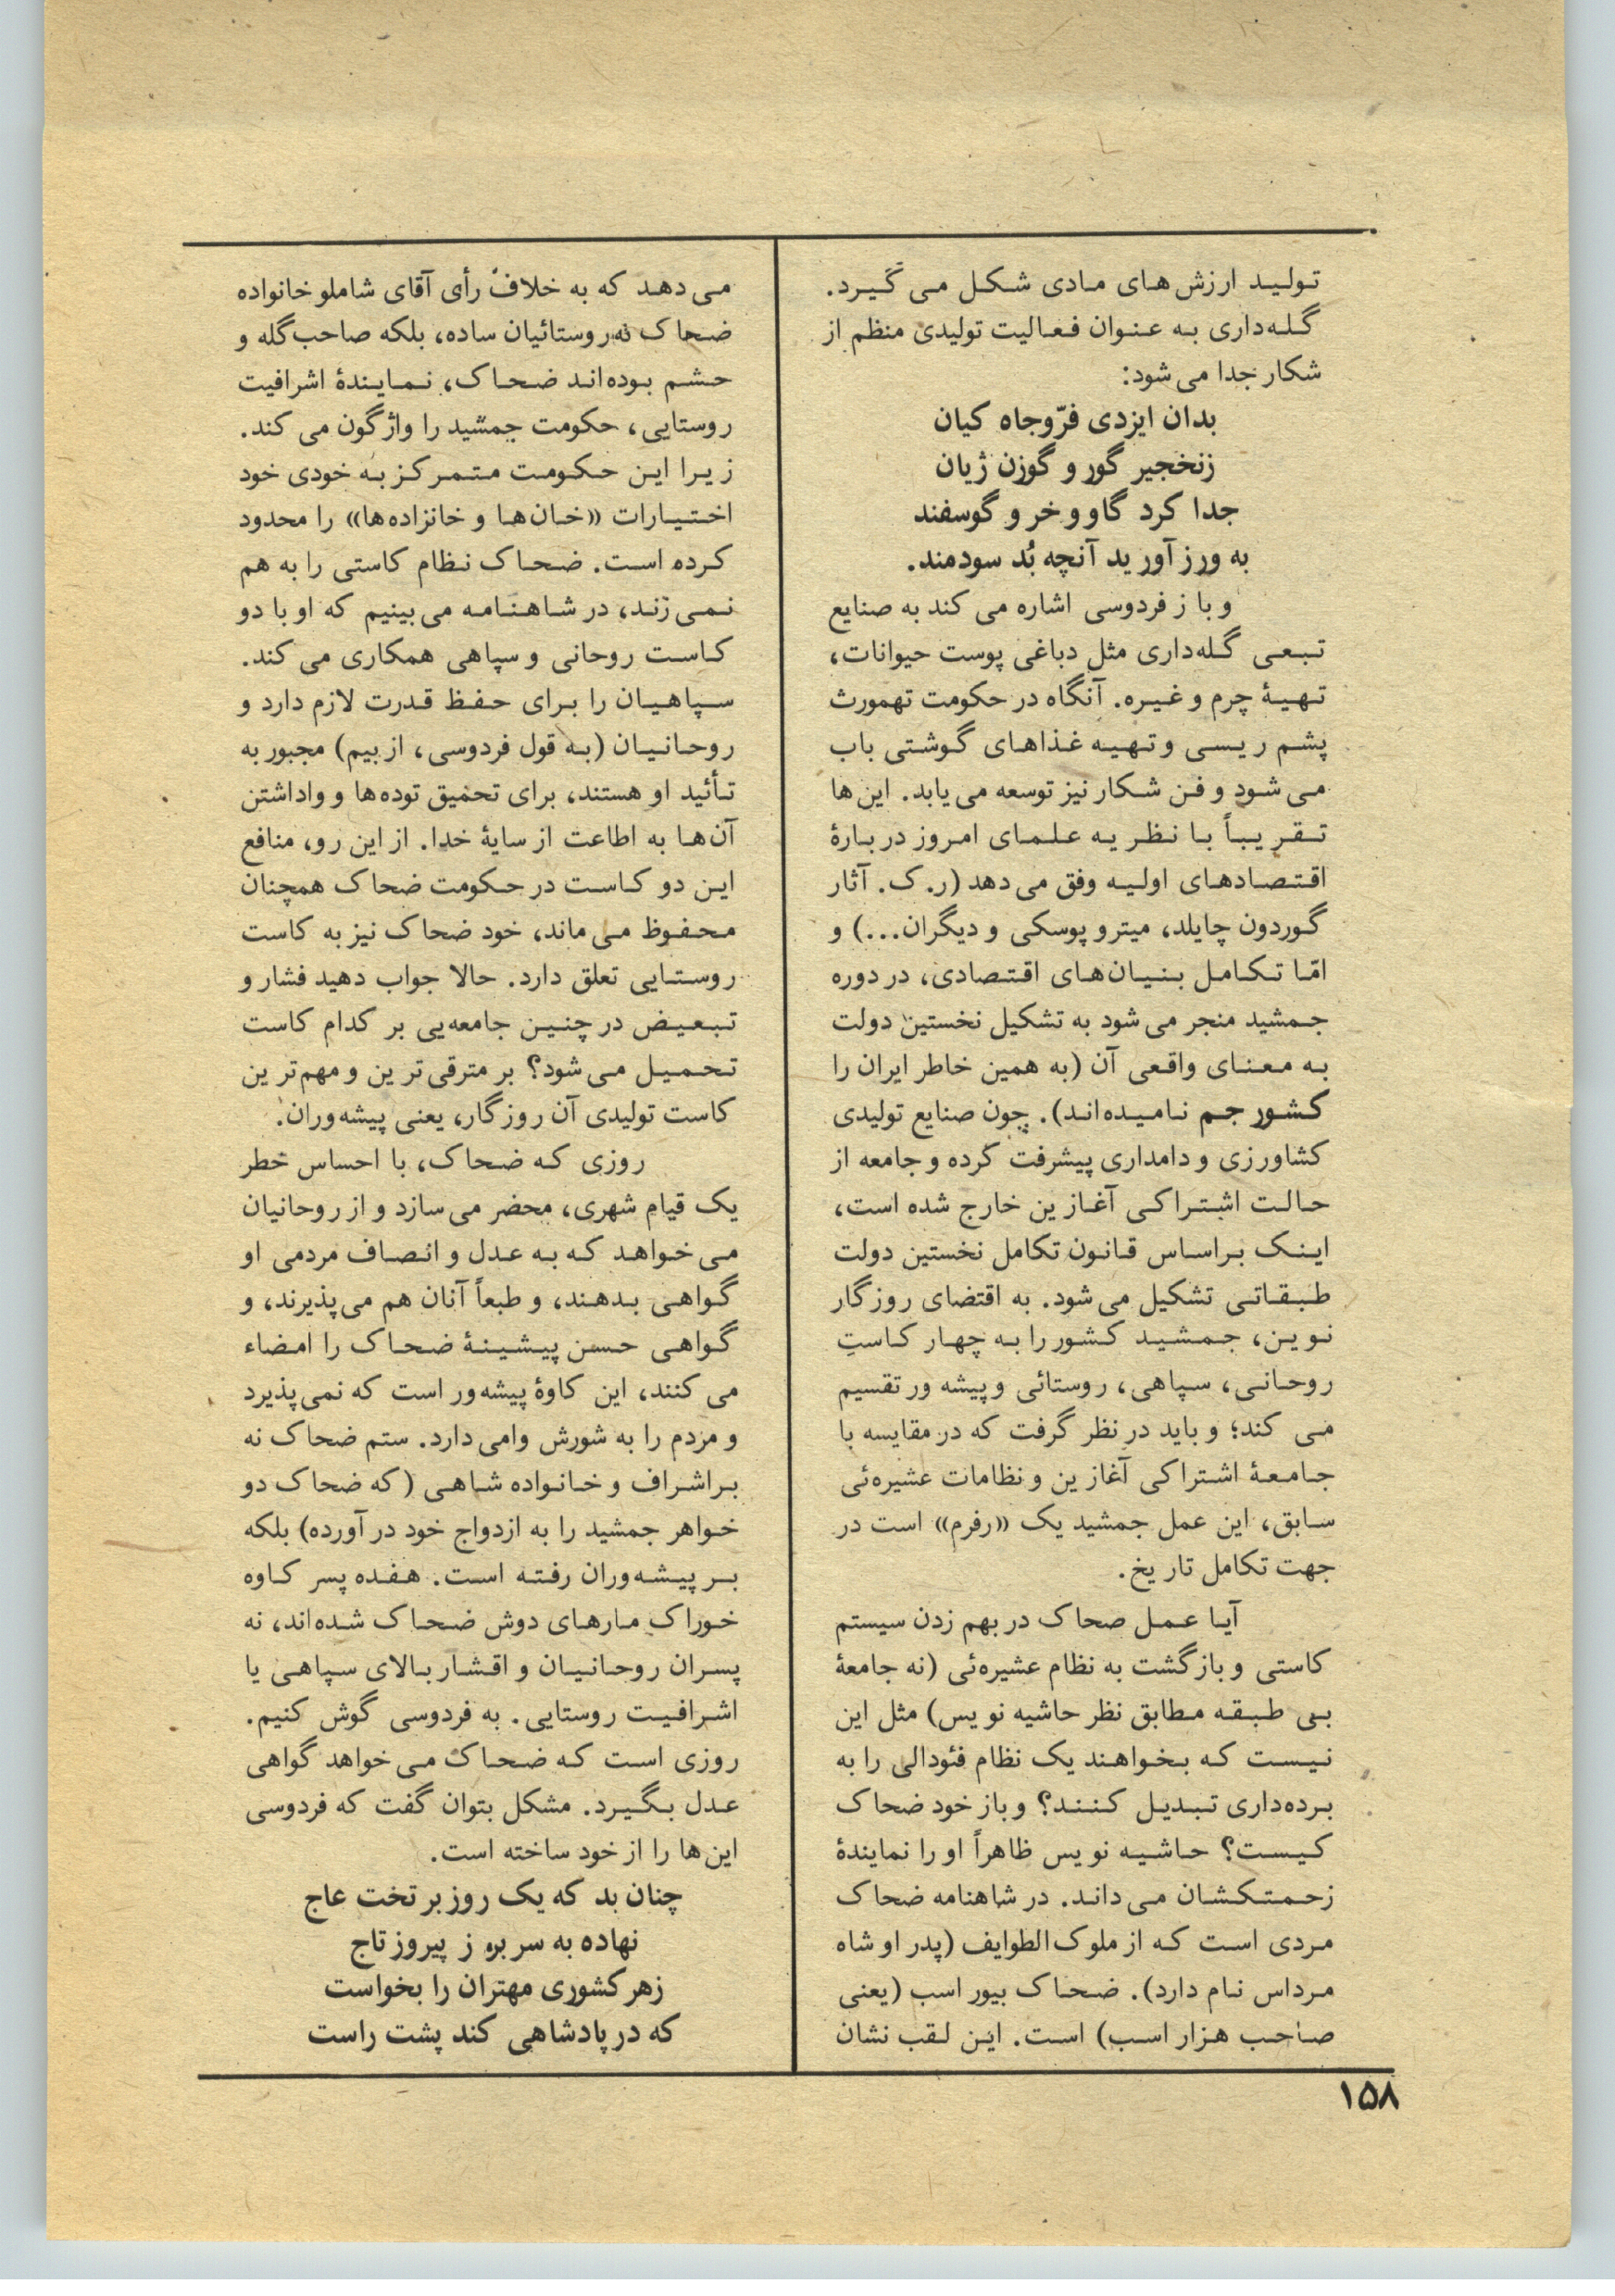 تولید ارزش‌های مادی شکل می گیرد.
گله‌داری به عنوان فعالیت تولیدی منظم از
شکار جدا می شود:
بدان ایزدی فرّوجاه کیان
زنخجیر گور و گوزن ژیان
جدا کرد گاو و خر و گوسفند
به ورز آورید آنچه بُد سودمند.
و باز فردوسی اشاره می کند به صنایع
تبعی گله‌داری مثل دباغی پوست حیوانات،
تهیهٔ چرم و غیره. آنگاه در حکومت تهمورث
پشم ریسی و تهیه غذاهای گوشتی باب
می شود و فن شکار نیز توسعه می یابد. این ها
تقریباً با نظریه علمای امروز دربارهٔ
اقتصادهای اولیه وفق می دهد (ر. ک. آثار
گوردون چایلد، میترو پوسکی و دیگران...) و
امّا تکامل بنیان‌های اقتصادی، در دوره
جمشید منجر می شود به تشکیل نخستین دولت
به معنای واقعی آن (به همین خاطر ایران را
کشور جم نامیده‌اند). چون صنایع تولیدی
کشاورزی و دامداری پیشرفت کرده و جامعه از
حالت اشتراکی آغازین خارج شده است،
اینک براساس قانون تکامل نخستین دولت
طبقاتی تشکیل می شود. به اقتضای روزگار
نوین، جمشید کشور را به چهار کاستِ
روحانی، سپاهی، روستائی و پیشه ور تقسیم
می کند؛ و باید در نظر گرفت که در مقایسه با
جامعهٔ اشتراکی آغازین و نظامات عشیره‌ئی
سابق، این عمل جمشید یک «رفرم» است در
جهت تکامل تاریخ.
آیا عمل صحاک در بهم زدن سیستم
کاستی و بازگشت به نظام عشیره‌ئی (نه جامعهٔ
بی طبقه مطابق نظر حاشیه نویس) مثل این
نیست که بخواهند یک نظام فئودالی را به
برده‌داری تبدیل کنند؟ و باز خود ضحاک
کیست؟ حاشیه نویس ظاهراً او را نمایندهٔ
زحمتکشان می داند. در شاهنامه ضحاک
مردی است که از ملوک الطوایف (پدر او شاه
مرداس نام دارد). ضحاک بیور اسب (یعنی
صاحب هزار اسب) است. این لقب نشان
می دهد که به خلاف رأی آقای شاملو خانواده
ضحاک نه روستائیان ساده، بلکه صاحب گله و
حشم بوده‌اند ضحاک، نمایندهٔ اشرافیت
روستایی، حکومت جمشید را واژگون می کند.
زیرا این حکومت متمرکز به خودی خود
اختیارات «خان‌ها و خانزاده‌ها» را محدود
کرده است. ضحاک نظام کاستی را به هم
نمی زند، در شاهنامه می بینیم که او با دو
کاست روحانی و سپاهی همکاری می کند.
سپاهیان را برای حفظ قدرت لازم دارد و
روحانیان (به قول فردوسی، از بیم) مجبور به
تأئید او هستند، برای تحمیق توده‌ها و واداشتن
آن‌ها به اطاعت از سایهٔ خدا. از این رو، منافع
این دو کاست در حکومت ضحاک همچنان
محفوظ می ماند، خود ضحاک نیز به کاست
روستایی تعلق دارد. حالا جواب دهید فشار و
تبعیض در چنین جامعه‌یی بر کدام کاست
تحمیل می شود؟ بر مترقی ترین و مهم ترین
کاست تولیدی آن روزگار، یعنی پیشه‌وران.
روزی که ضحاک، با احساس خطر
یک قیام شهری، محضر می سازد و از روحانیان
می خواهد که به عدل و انصاف مردمی او
گواهی بدهند، و طبعاً آنان هم می پذیرند، و
گواهی حسن پیشینهٔ ضحاک را امضاء
می کنند، این کاوهٔ پیشه‌ور است که نمی پذیرد
و مردم را به شورش وامی دارد. ستم ضحاک نه
بر اشراف و خانواده شاهی (که ضحاک دو
خواهر جمشید را به ازدواج خود در آورده) بلکه
بر پیشه‌وران رفته است. هفده پسر کاوه
خوراک مارهای دوش ضحاک شده‌اند، نه
پسران روحانیان و اقشار بالای سپاهی یا
اشرافیت روستایی. به فردوسی گوش کنیم.
روزی است که ضحاک می خواهد گواهی
عدل بگیرد. مشکل بتوان گفت که فردوسی
این‌ها را از خود ساخته است.
چنان بد که یک روز بر تخت عاج
نهاده به سر بر، ز پیروز تاج
زهر کشوری مهتران را بخواست
که در پادشاهی کند پشت راست
۱۵۸